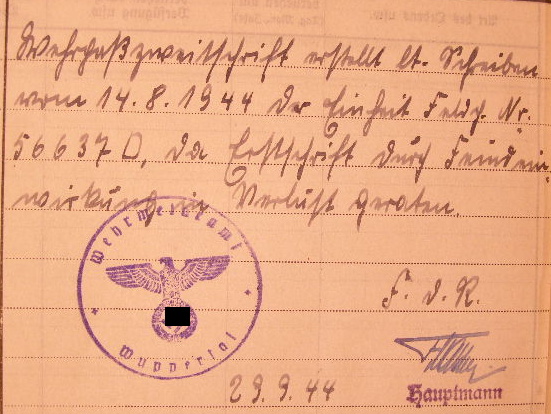 Wehrpaßzweitschrift erstellt lt. Schreiben
vom 14.8.1944 der Einheit Feldp. Nr.
56637 D, da Erstschrift durch Feindein-
wirkung in Verlust geraten.
Wehrmeldeamt
Wuppertal
F. d. R.
29.9.44
Hauptmann